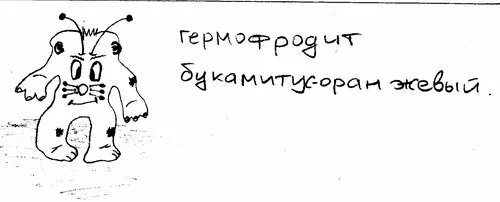 гермофродит
букамитус-оран жевый.